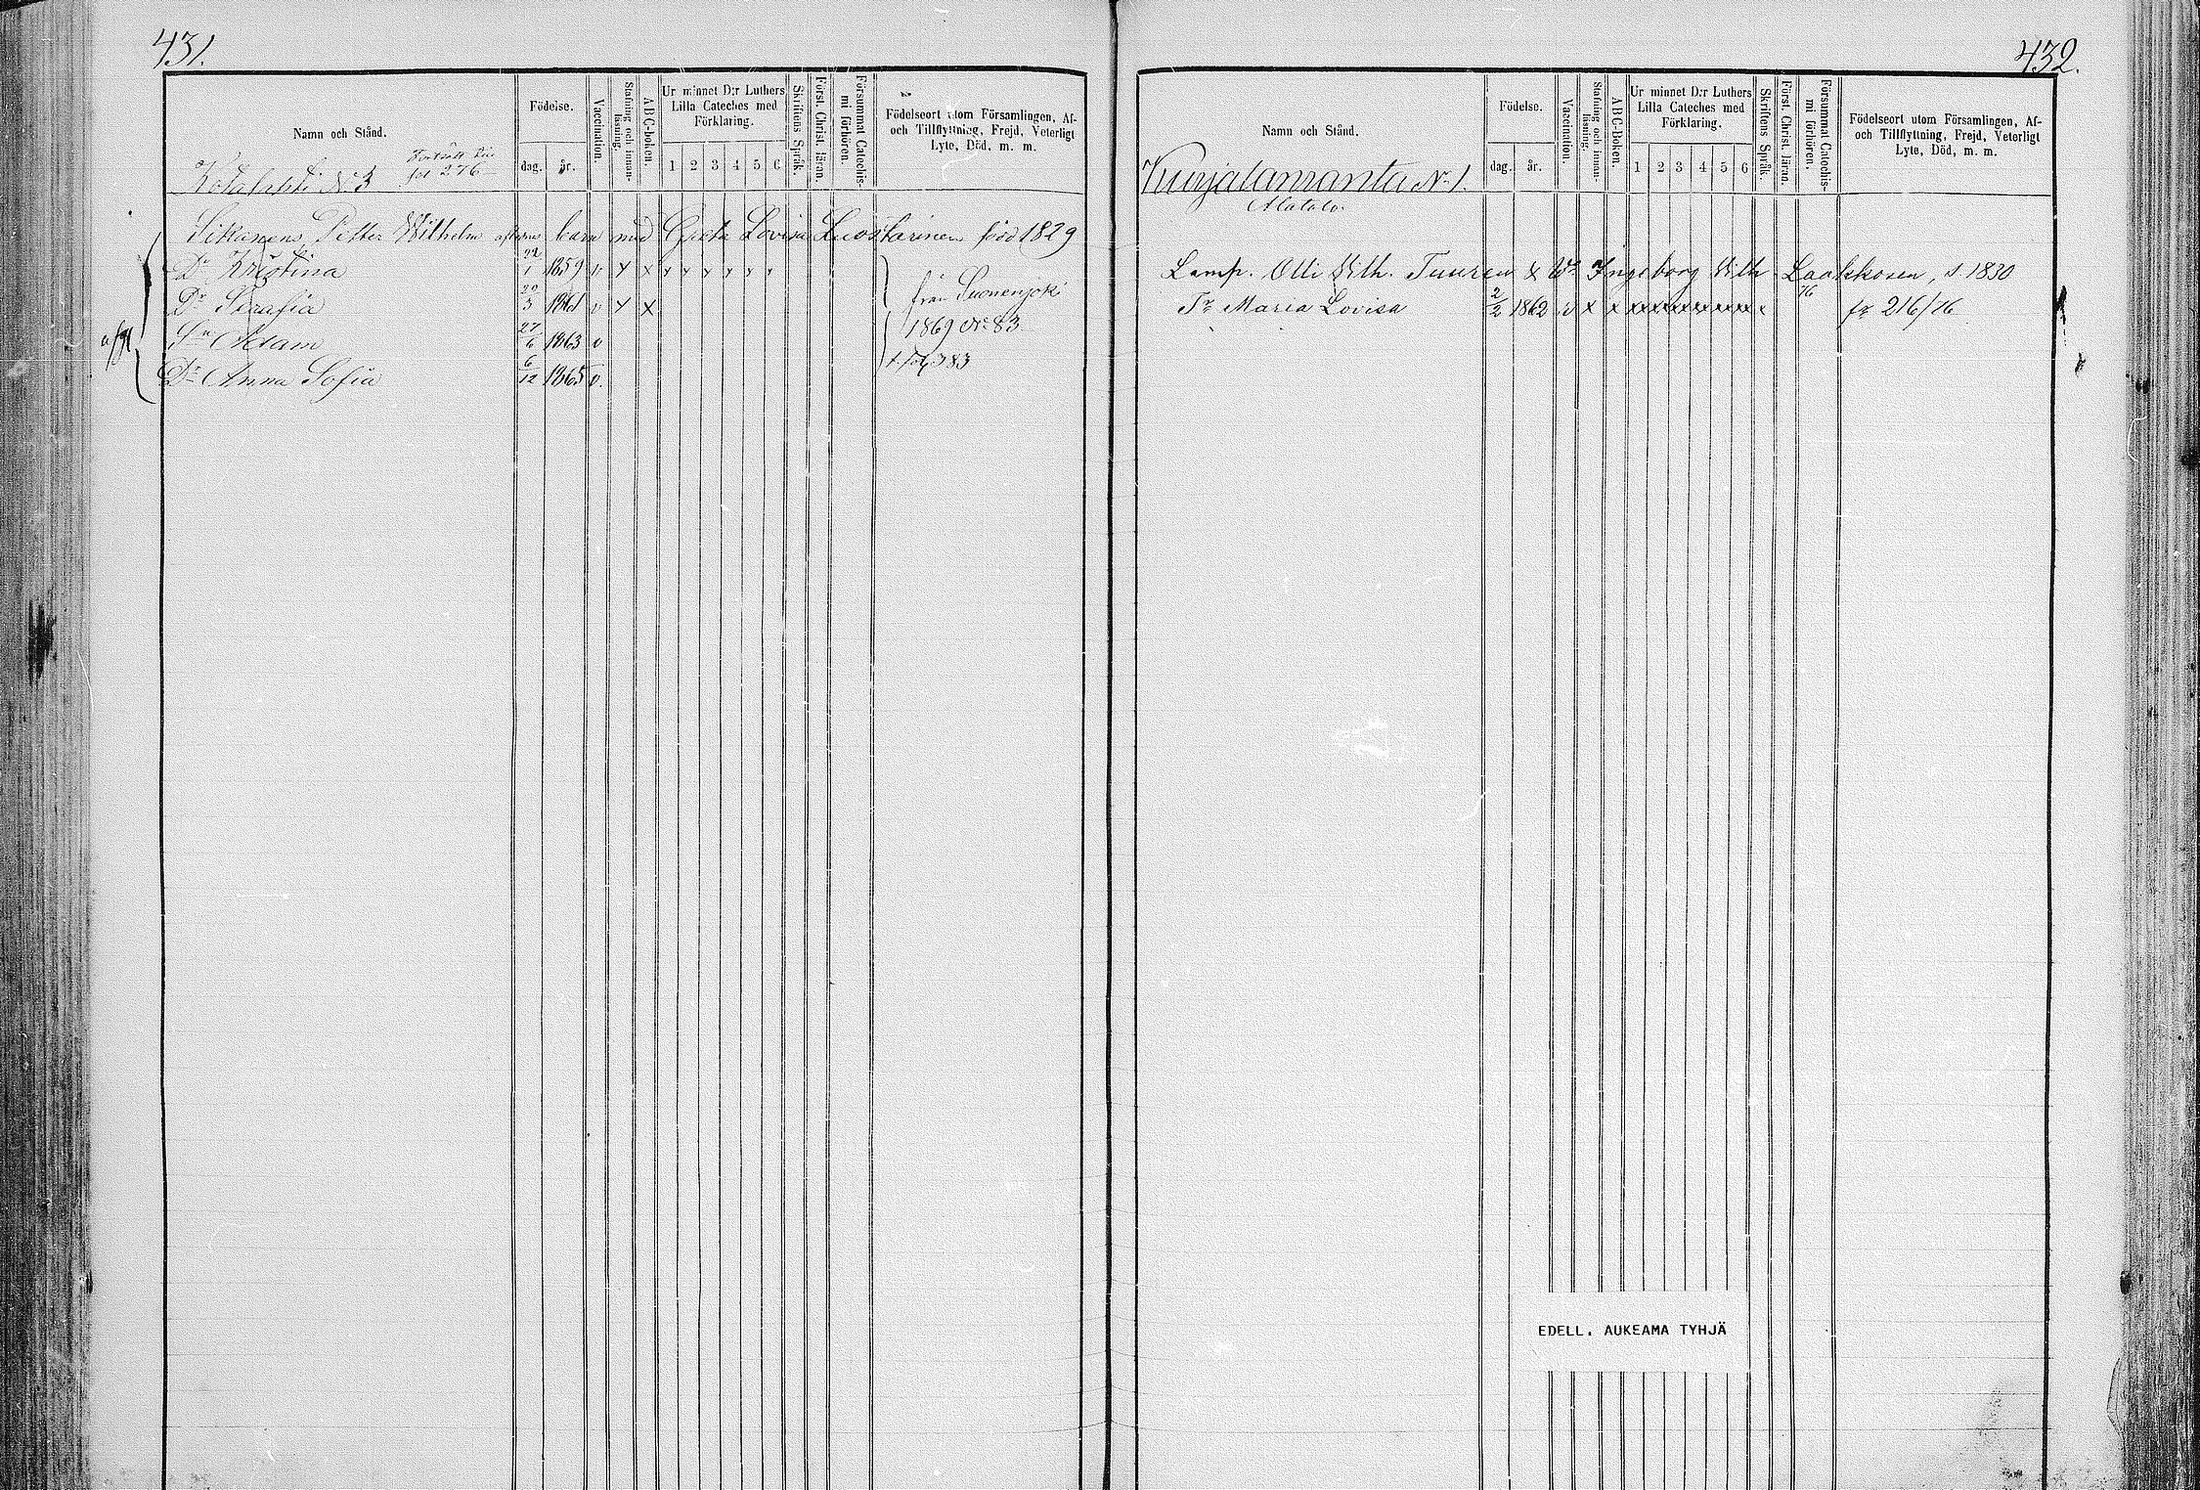 431.
Namn och Stånd.
Födelse.
dag. år.
Vaccination.
Stafning och innan-läsning.
ABC-boken.
Ur minnet D:r Luthers
Lilla Cateches med
Förklaring.
1 2 3 4 5 6
Skriftens Språk.
Först. Christ. läran.
Försummat Catechis-mi förhören.
Födelseort utom Församlingen, Af-
och Tillflyttning, Frejd, Veterligt
Lyte, Död, m. m.
N:3
fol 276
Petter Wilhelm barn med Greta Lovisa Luostarinen född 1829
D:r Kristina 22/1 1859 v x x x x x x x x
D:r Serafia 20/3 1861 v x x
från Suonenjoki
S:n Adam 27/6 1863 v
1869 N:83
D:r Anna Sofia 6/12 1865 v.
383
432.
Namn och Stånd.
Födelse.
dag. år.
Vaccination.
Stafning och innan-läsning.
ABC-boken.
Ur minnet D:r Luthers
Lilla Cateches med
Förklaring.
1 2 3 4 5 6
Skriftens Språk.
Först. Christ. läran.
Försummat Catechis-mi förhören.
Födelseort utom Församlingen, Af-
och Tillflyttning, Frejd, Veterligt
Lyte, Död, m. m.
Kurjalanranta N:1.
Alatalo.
Lamp. Olli Vilh. Tuuren & Ingeborg Vilh. Laakkonen, f. 1830
Maria Lovisa 2/2 1862 v x x x x x x x x x 76 fr 216/76
EDELL. AUKEAMA TYHJÄ